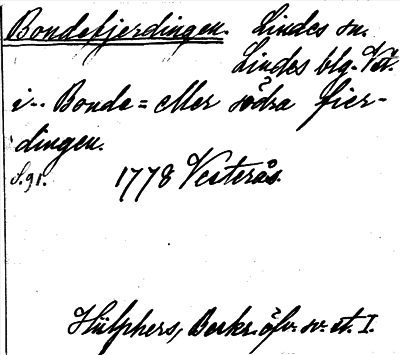 Bondefjerdingen. Lindes sn.
Lindes blg. Vst.
i-- Bonde= eller södra fier-
dingen.
S. 91. 1778 Vesterås.
Hülphers, Beskr. öfv. sv. st. I.